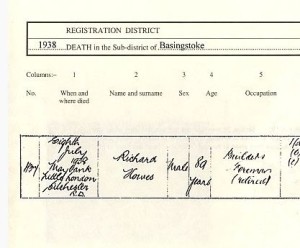 REGISTRATION DISTRICT
1938 DEATH in the Sub-district of Basingstoke
Columns:- 1 2 3 4 5
No. When and where died Name and surname Sex Age Occupation
Eighth
July
1938
Maybank
Little London
Silchester
R.D.
Richard
Howes
Male
89
years
Builders
Foreman
(retired)